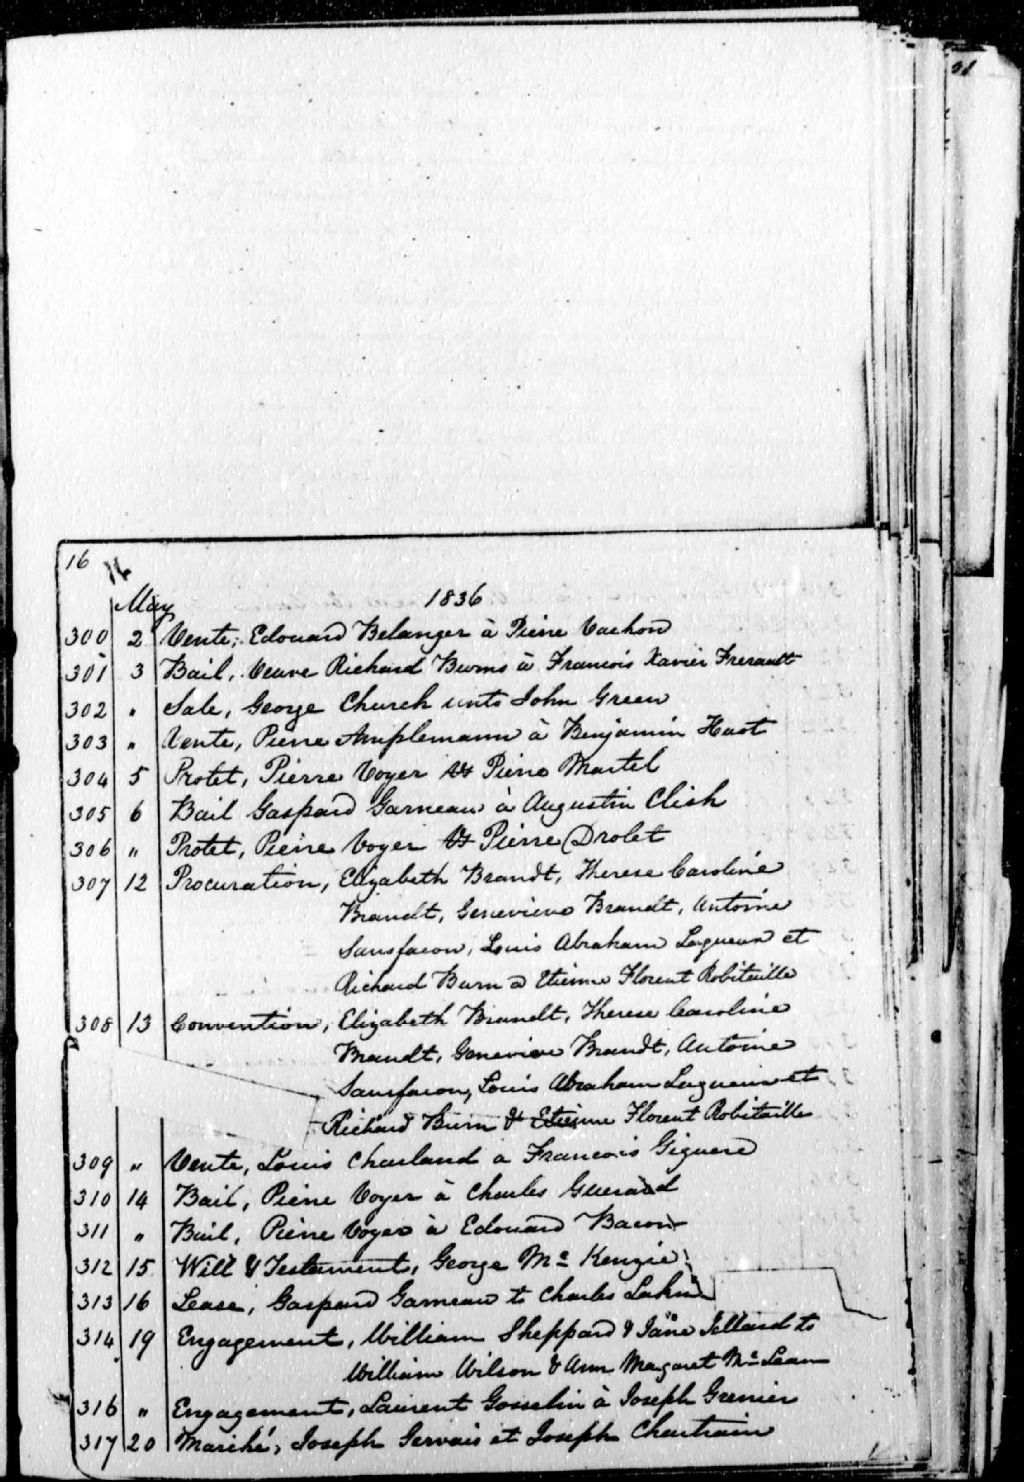 21
16 16
May 1836
300 2 Vente, Edouard Belanger à Pierre Vachon
301 3 Bail, Veuve Richard Burns à Francois Xavier Frenault
302 " Sale, George Church unto John Green
303 " Vente, Pierre Amplemann à Benjamin Haot
304 5 Protet, Pierre Voyer vs Pierre Martel
305 6 Bail Gaspard Garneau à Augustin Clish
306 " Protet, Pierre Voyer vs Pierre Drolet
307 12 Procuration, Elizabeth Brandt, Therese Caroline
Brandt, Genevieve Brandt, Antoine
Sansfacon, Louis Abraham Lagueux et
Richard Burn à Etienne Florent Robitaille
308 13 Convention, Elizabeth Brandt, Therese Caroline
Brandt, Genevieve Brandt, Antoine
Sansfacon, Louis Abraham Lagueux et
Richard Burn & Etienne Florent Robitaille
309 " Vente, Louis Charland a Francois Giguere
310 14 Bail, Pierre Voyer à Charles Guerard
311 " Bail, Pierre Voyer à Edouard Bacon
312 15 Will & Testament, George Mc Kenzie
313 16 Lease, Gaspard Garneau to Charles Lahn
314 19 Engagement, William Sheppard & Jane Jelland to
William Wilson & Ann Magaret Mc Lean
316 " Engagement, Laurent Gosselin à Joseph Grenier
317 20 Marché, Joseph Gervais et Joseph Chartrain